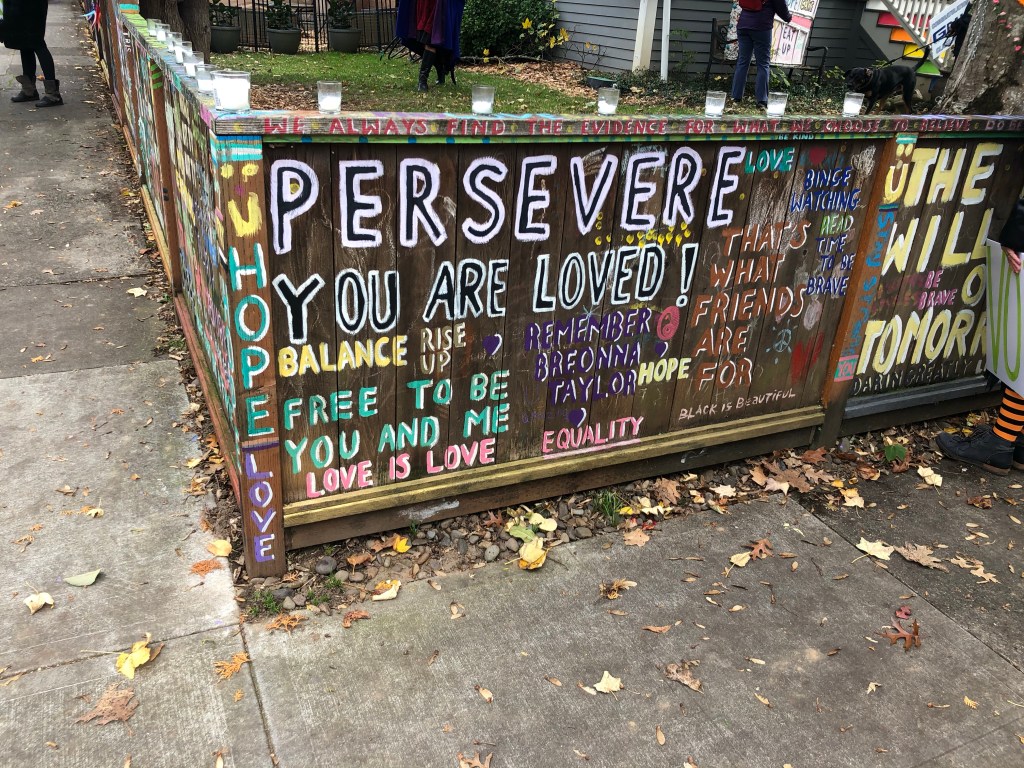 WE ALWAYS FIND THE EVIDENCE FOR WHAT WE CHOOSE TO BELIEVE
BE KIND
PERSEVERE
LOVE
YOU ARE LOVED!
BALANCE
RISE
UP
FREE TO BE
YOU AND ME
LOVE IS LOVE
REMEMBER
BREONNA
TAYLOR
HOPE
EQUALITY
THAT'S
WHAT
FRIENDS
ARE
FOR
BLACK IS BEAUTIFUL
BINGE
WATCHING
READ
TIME
TO BE
BRAVE
HOPE
LOVE
THE
WILL
BE
BRAVE
EAT
UP